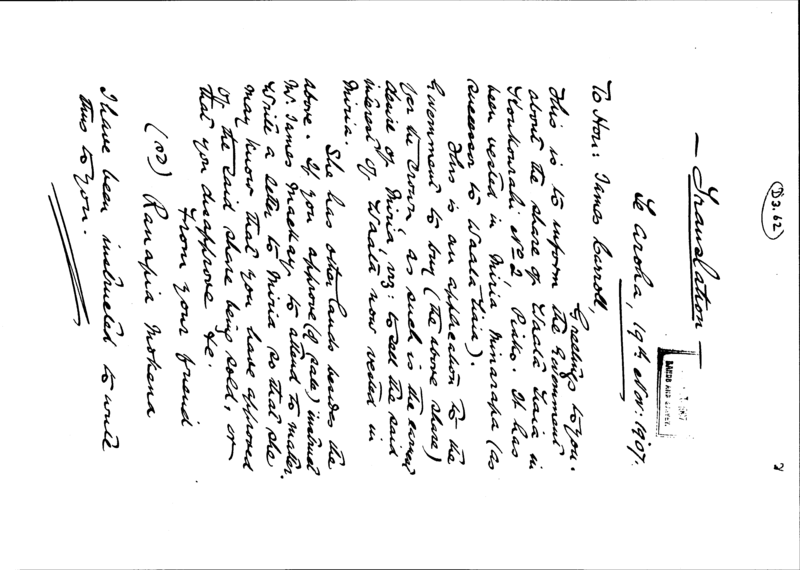 (D3.62)
2
— Translation —
Te Aroha, 19th Nov: 1907.
LANDS AND SURVEY
To Hon: James Carroll,
Greetings to you.
This is to inform the Government
about the share of Waata Tiaia in
Houkourahi No 2, Piako. It has
been vested in Miria Minarapa (as
successor to Waata Tiaia).
This is an application to the
Government to buy (the above share)
for the Crown, as such is the earnest
desire of Miria, viz: to sell the said
interest of Waata now vested in
Miria.
She has other lands besides the
above. If you approve (of sale) instruct
Mr. James Mackay to attend to matter.
Write a letter to Miria so that she
may know that you have approved
of the said share being sold, or
that you disapprove &c.
From your friend
(sd) Ranapia Mokena
I have been instructed to write
this to you.